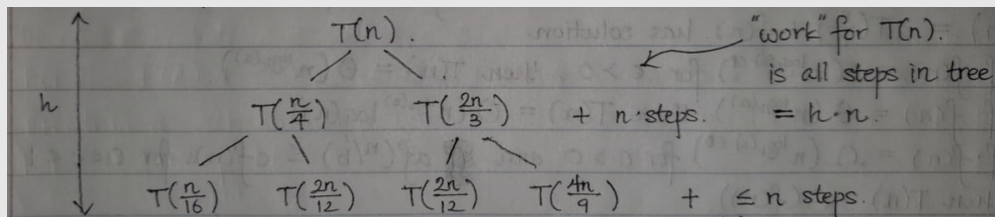 T(n).
"work" for T(n).
is all steps in tree
h
T(n/4) T(2n/3) + n·steps. = h·n.
T(n/16) T(2n/12) T(2n/12) T(4n/9) + ≤ n steps.